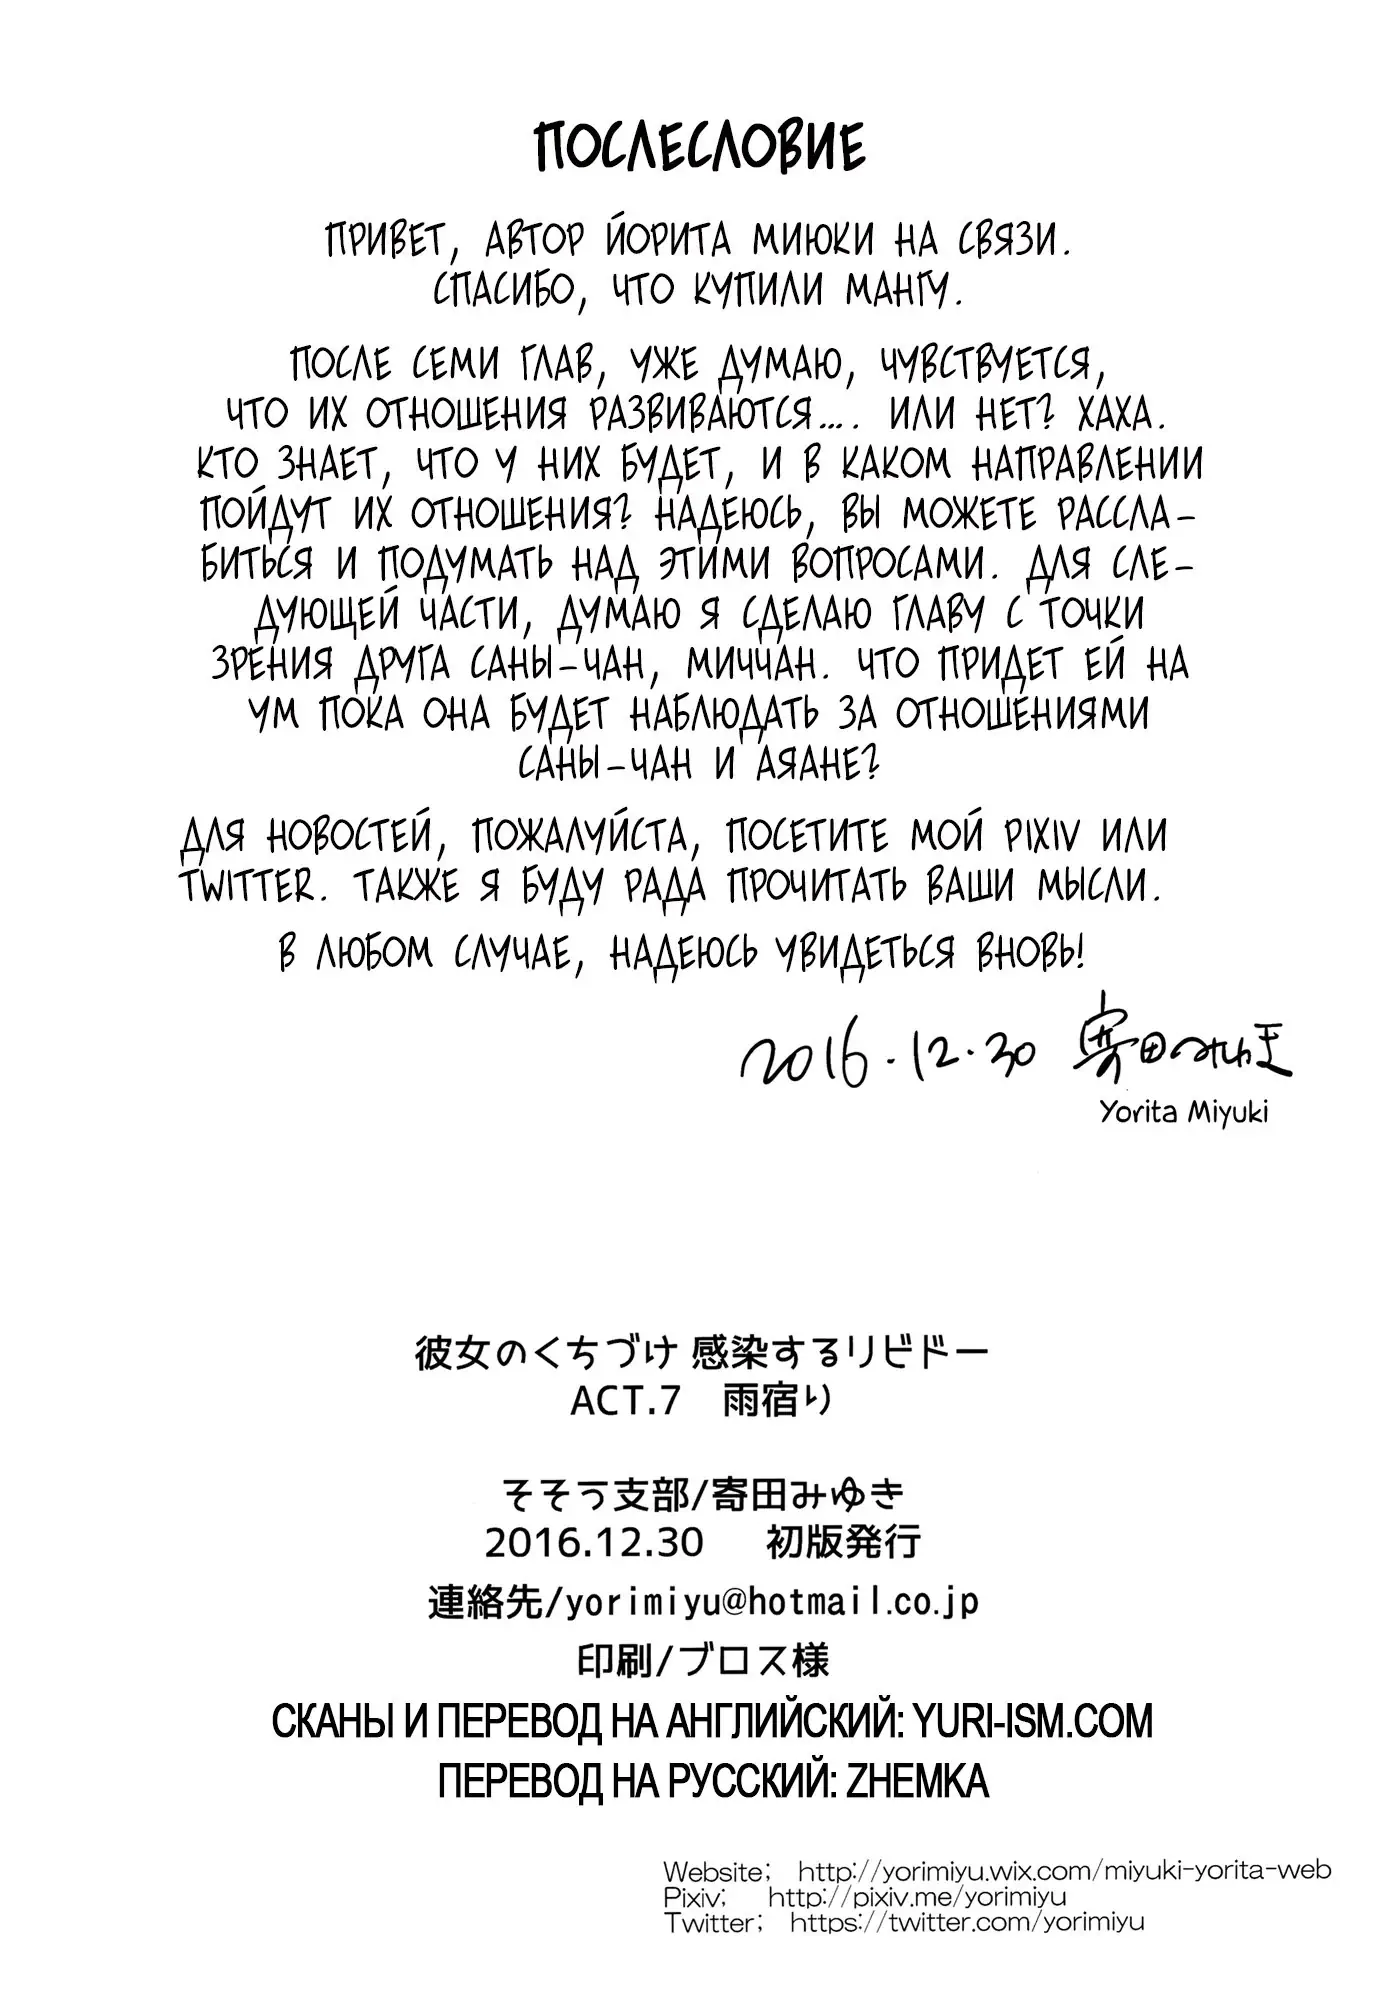 ПОСЛЕСЛОВИЕ
ПРИВЕТ, АВТОР ЙОРИТА МИЮКИ НА СВЯЗИ.
СПАСИБО, ЧТО КУПИЛИ МАНГУ.
ПОСЛЕ СЕМИ ГЛАВ, УЖЕ ДУМАЮ, ЧУВСТВУЕТСЯ,
ЧТО ИХ ОТНОШЕНИЯ РАЗВИВАЮТСЯ.... ИЛИ НЕТ? ХАХА.
КТО ЗНАЕТ, ЧТО У НИХ БУДЕТ, И В КАКОМ НАПРАВЛЕНИИ
ПОЙДУТ ИХ ОТНОШЕНИЯ? НАДЕЮСЬ, ВЫ МОЖЕТЕ РАССЛА-
БИТЬСЯ И ПОДУМАТЬ НАД ЭТИМИ ВОПРОСАМИ. ДЛЯ СЛЕ-
ДУЮЩЕЙ ЧАСТИ, ДУМАЮ Я СДЕЛАЮ ГЛАВУ С ТОЧКИ
ЗРЕНИЯ ДРУГА САНЫ-ЧАН, МИЧЧАН. ЧТО ПРИДЕТ ЕЙ НА
УМ ПОКА ОНА БУДЕТ НАБЛЮДАТЬ ЗА ОТНОШЕНИЯМИ
САНЫ-ЧАН И АЯАНЕ?
ДЛЯ НОВОСТЕЙ, ПОЖАЛУЙСТА, ПОСЕТИТЕ МОЙ PIXIV ИЛИ
TWITTER. ТАКЖЕ Я БУДУ РАДА ПРОЧИТАТЬ ВАШИ МЫСЛИ.
В ЛЮБОМ СЛУЧАЕ, НАДЕЮСЬ УВИДЕТЬСЯ ВНОВЬ!
2016.12.30 寄田みゆき
Yorita Miyuki
彼女のくちづけ 感染するリビドー
ACT.7 雨宿り
そそう支部/寄田みゆき
2016.12.30 初版発行
連絡先/yorimiyu@hotmail.co.jp
印刷/ブロス様
СКАНЫ И ПЕРЕВОД НА АНГЛИЙСКИЙ: YURI-ISM.COM
ПЕРЕВОД НА РУССКИЙ: ZHEMKA
Website; http://yorimiyu.wix.com/miyuki-yorita-web
Pixiv; http://pixiv.me/yorimiyu
Twitter; https://twitter.com/yorimiyu